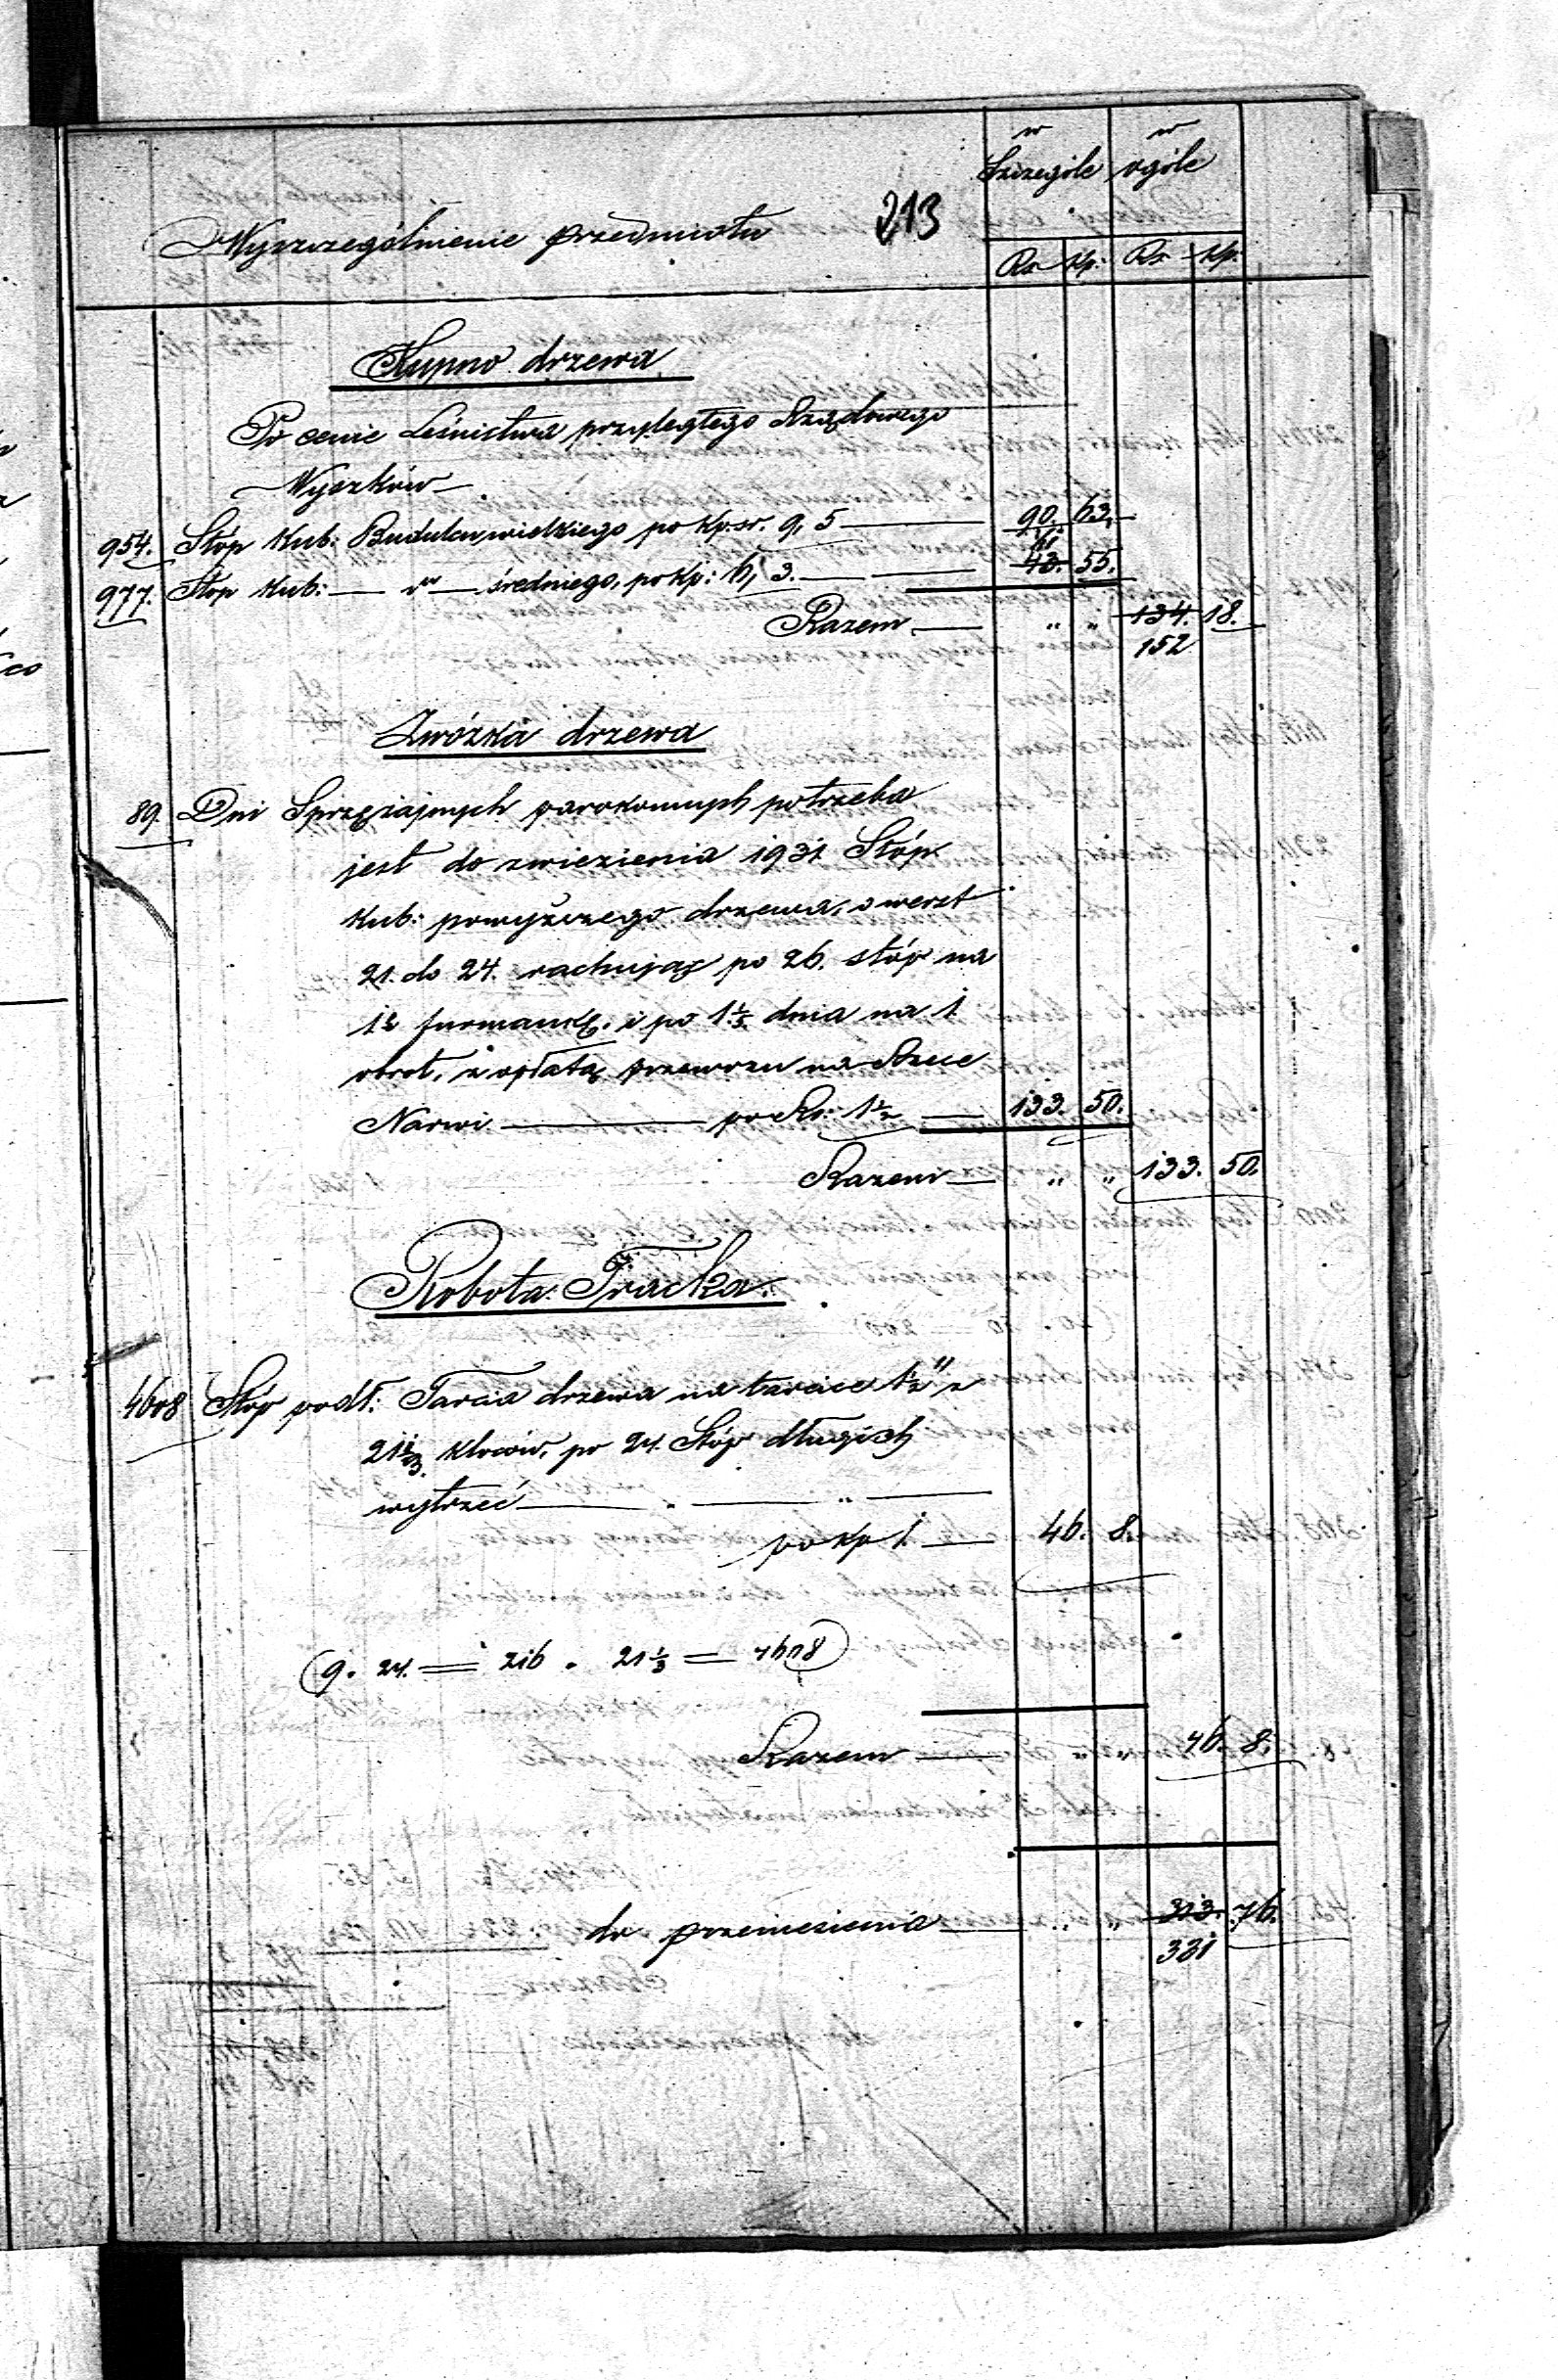 w w
Szczególe ogóle
Wyszczególnienie przedmiotu 213
Rs. Kp: Rs. Kp:
Kupno drzewa
Po cenie Leśnictwa przyległego Rządowego
Wyszków
954. Stóp Kub: Budulcu wielkiego po Kp.sr. 9, 5 — 90. 63,
61
977. Stóp Kub: — d° — średniego, po Kp: 6, 3. — 43. 55.
Razem — " " 134. 18.
152
Zwózka drzewa
89. Dni Sprzężajnych parokonnych potrzeba
jest do zwiezienia 1931 Stóp
Kub: powyższego drzewa, o werst
21. do 24. rachując po 26. stóp na
1ą furmankę, i po 1 1/5 dnia na 1.
obrot, z opłatą przewozu na Rzece
Narwi — po Rs: 1 1/2 — 133. 50.
Razem — " " 133. 50.
Robota Tracka.
4608 Stóp podł: Tarcia drzewa na tarcice 1 1/2" z
21 1/3 kloców, po 24. Stóp długich
wytrzeć — " — " —
po kp 1. — 46. 8.
(9. 24. = 216 . 21 1/3 = 4608)
Razem — " 46. 8.
do przeniesienia — " " 313. 76.
331